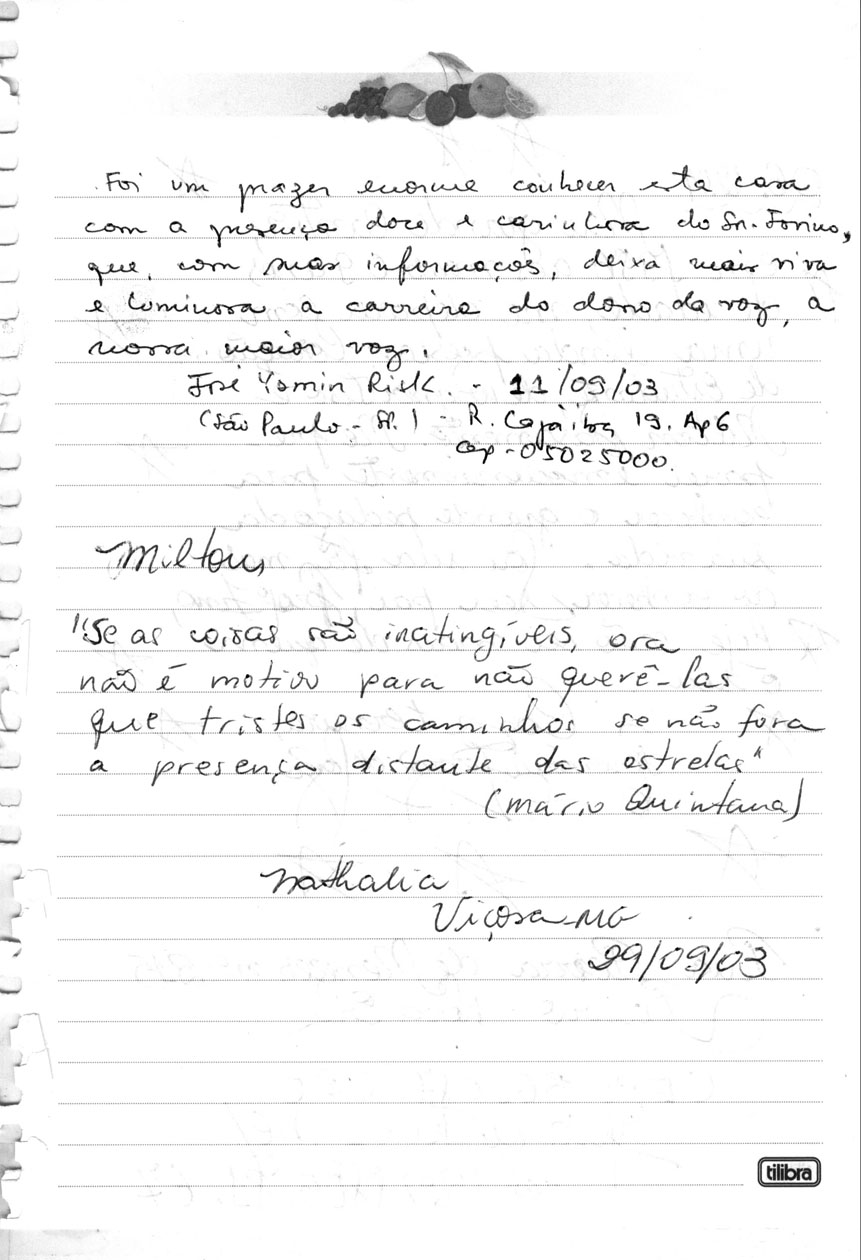 Foi um prazer enorme conhecer esta casa
com a presença doce e carinhosa do Sr. Jorino,
que, com suas informações, deixa mais viva
e luminosa a carreira do dono da voz, a
nossa maior voz.
José Yamin Risk. - 11/09/03
(São Paulo - SP.) - R. Cajaíba 19. Ap 6
cep - 05025000.
Milton,
"Se as coisas são inatingíveis, ora
não é motivo para não querê-las
que tristes os caminhos se não fora
a presença distante das estrelas"
(Mário Quintana)
Nathalia
Viçosa-MG
29/09/03
tilibra